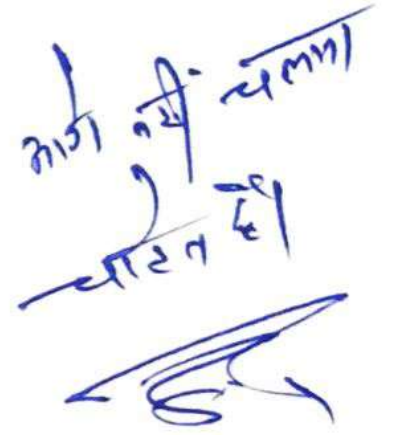 आगे नहीं चलना
चाहते हैं।